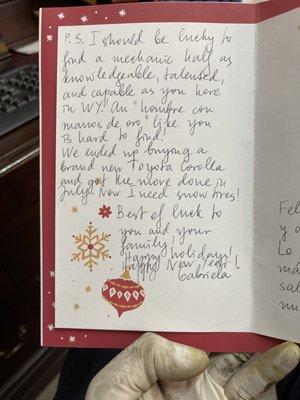 P.S. I should be lucky to
find a mechanic half as
knowledgeable, talented,
and capable as you here
in WY. An "hombre con
manos de oro" like you
is hard to find!
We ended up buying a
brand new Toyota Corolla
and got the move done in
July. Now I need snow tires!
Best of luck to
you and your
family!
Happy holidays!
Happy New Year!
Gabriela
Fel
y a
Le
má
sal
nu